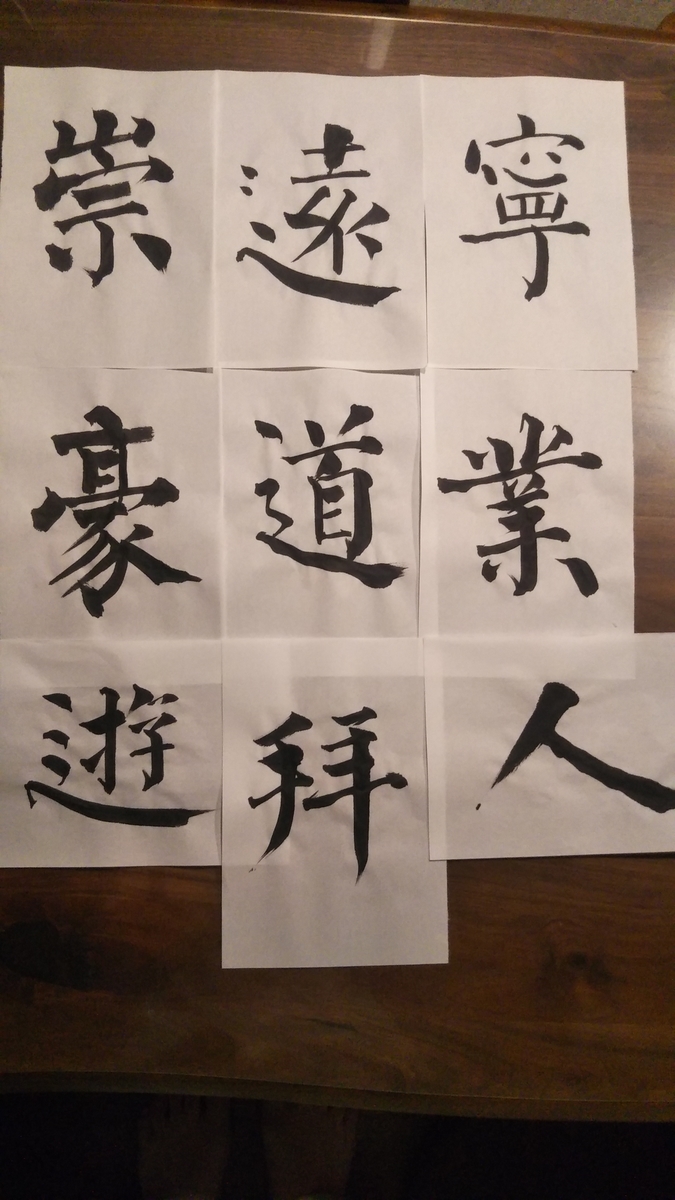 崇遠寧
豪道業
遊拜人